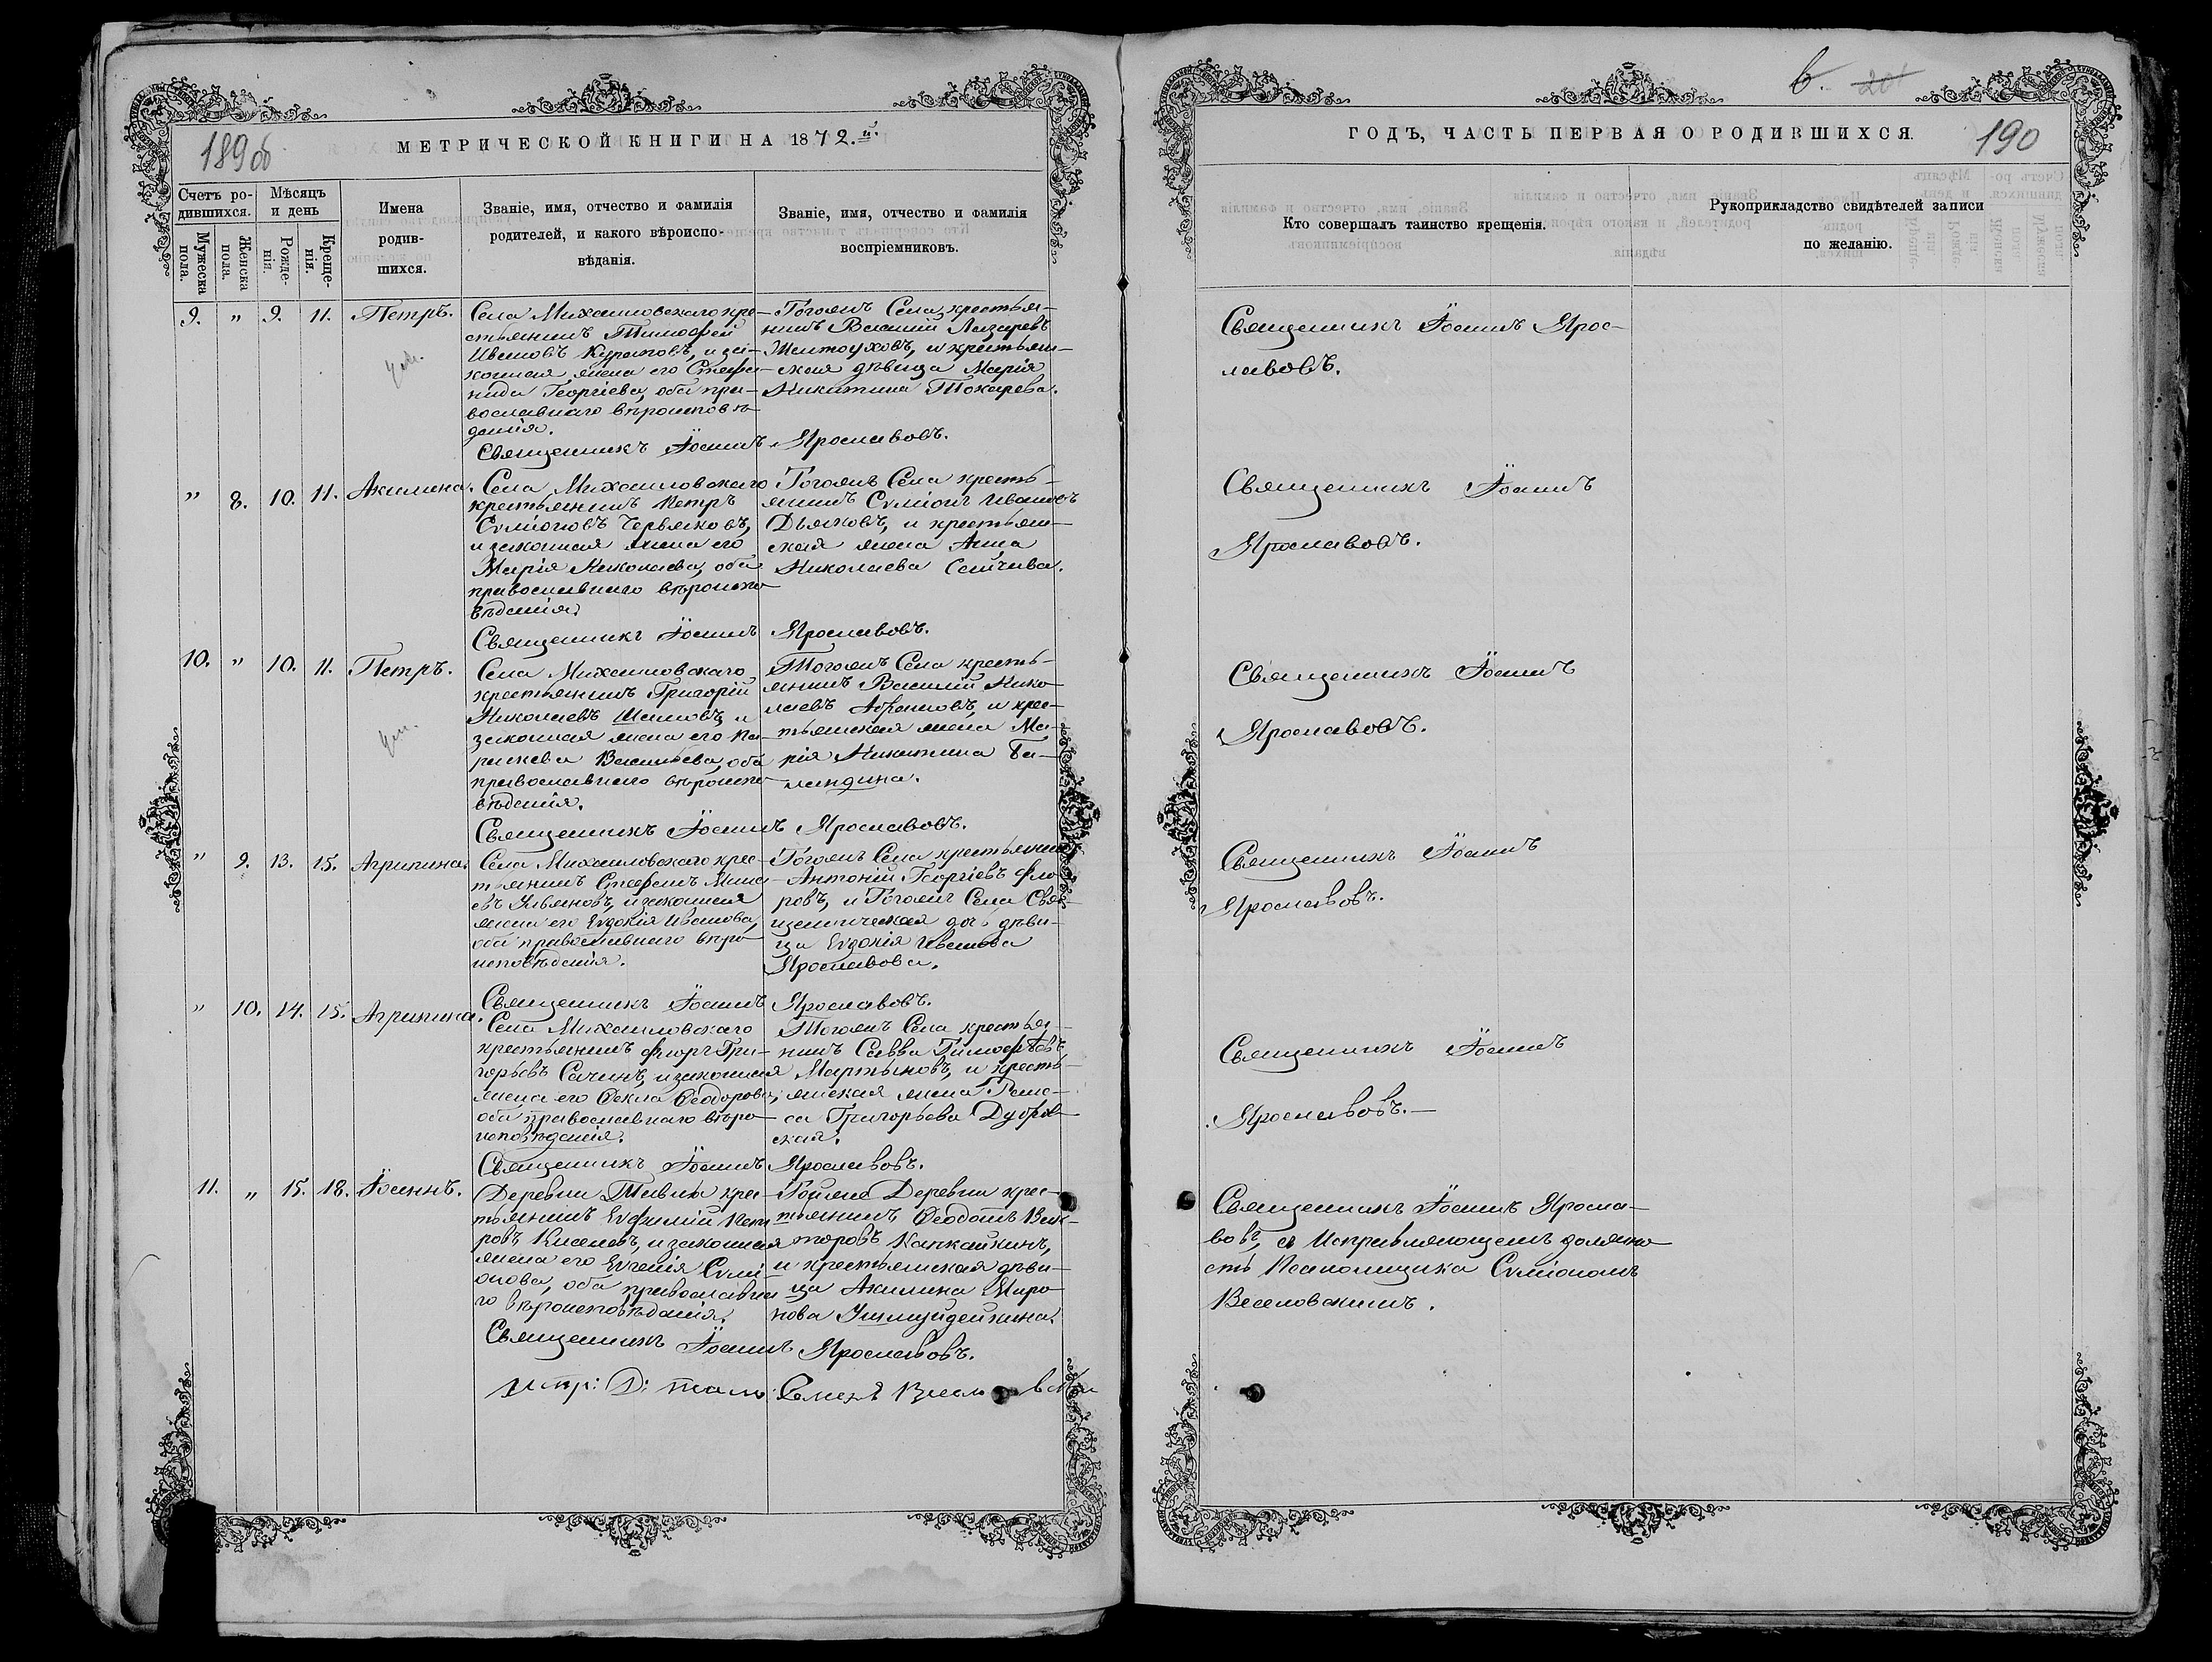 189об
МЕТРИЧЕСКОЙ КНИГИ НА 1872.й
Счетъ ро-
дившихся.
Мужеска
пола.
Женска
пола.
Мѣсяцъ
и день
Рожде-
нія.
Креще-
нія.
Имена
родив-
шихся.
Званіе, имя, отчество и фамилія
родителей, и какого вѣроиспо-
вѣданія.
Званіе, имя, отчество и фамилія
воспріемниковъ.
9. " 9. 11. Петръ.
ум.
Села Михаиловскаго кре-
стьянинъ Тимофей
Ивановъ Куратовъ, и за-
конная жена его Стефа-
нида Георгіева, оба пра-
вославнаго вѣроисповѣ-
данія.
Тогожъ Села, крестья-
нинъ Василій Лазаревъ
Желтоуховъ, и крестьян-
ская дѣвица Марія
Никитина Токарева.
Священникъ Іоаннъ Ярославовъ.
" 8. 10. 11. Акилина.
Села Михаиловскаго
крестьянинъ Петръ
Сѵміоновъ Червяковъ,
и законная жена его
Марія Николаева, оба
православнаго вѣроиспо
вѣданія.
Тогожъ Села кресть-
янинъ Сѵміонъ Ивановъ
Дьяковъ, и крестьян-
ская жена Анна
Николаева
Священникъ Іоаннъ Ярославовъ.
10. " 10. 11. Петръ.
ум.
Села Михаиловскаго
крестьянинъ Григорій
Николаевъ и
законная жена его Па-
раскева Васильева, оба
православнаго вѣроиспо-
вѣданія.
Тогожъ Села кресть-
янинъ Василій Нико-
лаевъ и крес-
тьянская жена Ма-
рія Никитина Ба-
ландина.
Священникъ Іоаннъ Ярославовъ.
" 9. 13. 15. Агрипина.
Села Михаиловскаго крес-
тьянинъ Стефанъ Мина-
евъ Ульяновъ, и законная
жена его Еѵдокія Иванова,
оба православнаго вѣро-
исповѣданія.
Тогожъ Села крестьянинъ
Антоній Георгіевъ Фло-
ровъ, и Тогожъ Села Свя-
щенническая дочь дѣви-
ца Еѵдокія Иванова
Ярославова.
Священникъ Іоаннъ Ярославовъ.
" 10. 14. 15. Агрипина.
Села Михаиловскаго
крестьянинъ Флоръ Гри-
горьевъ Сачинъ, и законная
жена его Ѳекла Ѳеодорова,
оба православнаго вѣро-
исповѣданія.
Тогожъ Села крестья-
нинъ Савва Тимофѣевъ
Мартыновъ, и кресть-
янская жена
Григорьева Дубров-
ская.
Священникъ Іоаннъ Ярославовъ.
11. " 15. 18. Іоаннъ.
Деревни крес-
тьянинъ Еѵфимій Пет-
ровъ Киселевъ, и законная
жена его Еѵгенія Сѵмі-
онова, оба православна-
го вѣроисповѣданія.
Тойже Деревни крес-
тьянинъ Ѳеодотъ Вик-
торовъ Капкайкинъ,
и крестьянская дѣви-
ца Акилина Миро-
нова
Священникъ Іоаннъ Ярославовъ.
испр: Д:
190
ГОДЪ, ЧАСТЬ ПЕРВАЯ О РОДИВШИХСЯ.
Кто совершалъ таинство крещенія.
Рукоприкладство свидѣтелей записи
по желанію.
Священникъ Іоаннъ Ярос-
лавовъ.
Священникъ Іоаннъ
Ярославовъ.
Священникъ Іоаннъ
Ярославовъ.
Священникъ Іоаннъ
Ярославовъ.
Священникъ Іоаннъ
Ярославовъ.—
Священникъ Іоаннъ Яросла-
вовъ, съ Исправляющемъ должно
сть Псаломщика Сѵміономъ
Веселовскимъ.